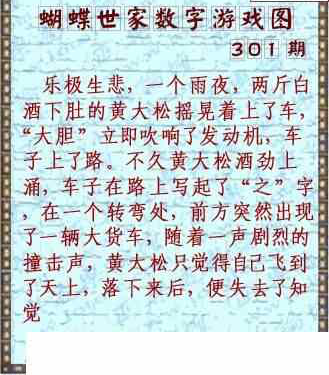 蝴蝶世家数字游戏图
301期
乐极生悲，一个雨夜，两斤白
酒下肚的黄大松摇晃着上了车，
“大胆”立即吹响了发动机，车
子上了路。不久黄大松酒劲上
涌，车子在路上写起了“之”字
，在一个转弯处，前方突然出现
了一辆大货车，随着一声剧烈的
撞击声，黄大松只觉得自己飞到
了天上，落下来后，便失去了知
觉